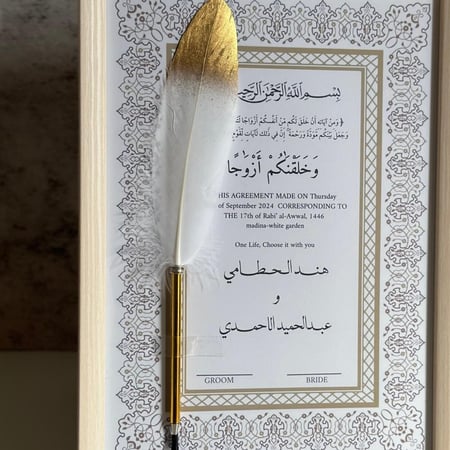 بِسْمِ اللَّهِ الرَّحْمَٰنِ الرَّحِيمِ
﴿ وَمِنْ آيَاتِهِ أَنْ خَلَقَ لَكُم مِّنْ أَنفُسِكُمْ أَزْوَاجًا
وَجَعَلَ بَيْنَكُم مَّوَدَّةً وَرَحْمَةً إِنَّ فِي ذَٰلِكَ لَآيَاتٍ
وَخَلَقْنَاكُمْ أَزْوَاجًا
THIS AGREEMENT MADE ON Thursday
of September 2024 CORRESPONDING TO
THE 17th of Rabi' al-Awwal, 1446
madina-white garden
One Life, Choose it with you
هند الحطامي
و
عبدالحميد الاحمدي
GROOM BRIDE